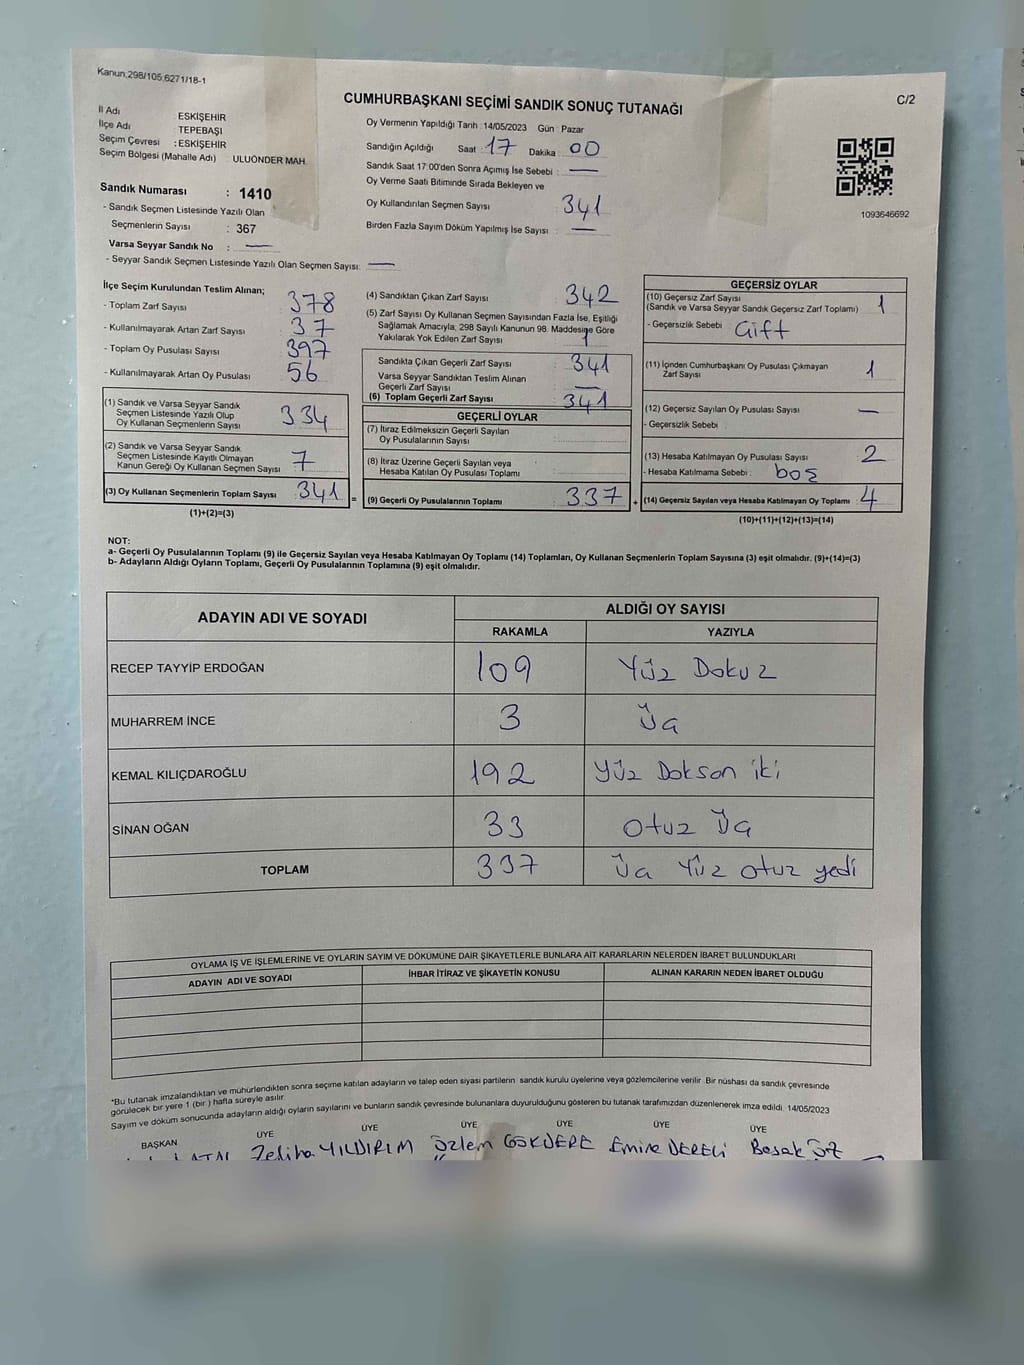 Kanun:298/105,6271/18-1
CUMHURBAŞKANI SEÇİMİ SANDIK SONUÇ TUTANAĞI
C/2
İl Adı ESKİŞEHİR
İlçe Adı TEPEBAŞI
Seçim Çevresi : ESKİŞEHİR
Seçim Bölgesi (Mahalle Adı) ULUÖNDER MAH.
Sandık Numarası : 1410
- Sandık Seçmen Listesinde Yazılı Olan
Seçmenlerin Sayısı : 367
Varsa Seyyar Sandık No : —
- Seyyar Sandık Seçmen Listesinde Yazılı Olan Seçmen Sayısı: —
Oy Vermenin Yapıldığı Tarih :14/05/2023 Gün Pazar
Sandığın Açıldığı Saat :17 Dakika 00
Sandık Saat 17:00'den Sonra Açımış İse Sebebi : —
Oy Verme Saati Bitiminde Sırada Bekleyen ve
Oy Kullandırılan Seçmen Sayısı 341
Birden Fazla Sayım Döküm Yapılmış İse Sayısı : —
1093646692
İlçe Seçim Kurulundan Teslim Alınan;
- Toplam Zarf Sayısı 378
- Kullanılmayarak Artan Zarf Sayısı 37
- Toplam Oy Pusulası Sayısı 397
- Kullanılmayarak Artan Oy Pusulası 56
(1) Sandık ve Varsa Seyyar Sandık
Seçmen Listesinde Yazılı Olup
Oy Kullanan Seçmenlerin Sayısı 334
(2) Sandık ve Varsa Seyyar Sandık
Seçmen Listesinde Kayıtlı Olmayan
Kanun Gereği Oy Kullanan Seçmen Sayısı 7
(3) Oy Kullanan Seçmenlerin Toplam Sayısı 341 =
(1)+(2)=(3)
(4) Sandıktan Çıkan Zarf Sayısı 342
(5) Zarf Sayısı Oy Kullanan Seçmen Sayısından Fazla İse, Eşitliği
Sağlamak Amacıyla, 298 Sayılı Kanunun 98. Maddesine Göre
Yakılarak Yok Edilen Zarf Sayısı 1
Sandıkta Çıkan Geçerli Zarf Sayısı 341
Varsa Seyyar Sandıktan Teslim Alınan
Geçerli Zarf Sayısı —
(6) Toplam Geçerli Zarf Sayısı 341
GEÇERLİ OYLAR
(7) İtiraz Edilmeksizin Geçerli Sayılan
Oy Pusulalarının Sayısı
(8) İtiraz Üzerine Geçerli Sayılan veya
Hesaba Katılan Oy Pusulası Toplamı
(9) Geçerli Oy Pusulalarının Toplamı 337 +
GEÇERSİZ OYLAR
(10) Geçersiz Zarf Sayısı
(Sandık ve Varsa Seyyar Sandık Geçersiz Zarf Toplamı) 1
- Geçersizlik Sebebi Çift
(11) İçinden Cumhurbaşkanı Oy Pusulası Çıkmayan
Zarf Sayısı 1
(12) Geçersiz Sayılan Oy Pusulası Sayısı —
- Geçersizlik Sebebi
(13) Hesaba Katılmayan Oy Pusulası Sayısı 2
- Hesaba Katılmama Sebebi : boş
(14) Geçersiz Sayılan veya Hesaba Katılmayan Oy Toplamı 4
(10)+(11)+(12)+(13)=(14)
NOT:
a- Geçerli Oy Pusulalarının Toplamı (9) ile Geçersiz Sayılan veya Hesaba Katılmayan Oy Toplamı (14) Toplamları, Oy Kullanan Seçmenlerin Toplam Sayısına (3) eşit olmalıdır. (9)+(14)=(3)
b- Adayların Aldığı Oyların Toplamı, Geçerli Oy Pusulalarının Toplamına (9) eşit olmalıdır.
ADAYIN ADI VE SOYADI ALDIĞI OY SAYISI
RAKAMLA YAZIYLA
RECEP TAYYİP ERDOĞAN 109 Yüz Dokuz
MUHARREM İNCE 3 Üç
KEMAL KILIÇDAROĞLU 192 Yüz Dokson iki
SİNAN OĞAN 33 Otuz Üç
TOPLAM 337 Üç Yüz otuz yedi
OYLAMA İŞ VE İŞLEMLERİNE VE OYLARIN SAYIM VE DÖKÜMÜNE DAİR ŞİKAYETLERLE BUNLARA AİT KARARLARIN NELERDEN İBARET BULUNDUKLARI
ADAYIN ADI VE SOYADI İHBAR İTİRAZ VE ŞİKAYETİN KONUSU ALINAN KARARIN NEDEN İBARET OLDUĞU
*Bu tutanak imzalandıktan ve mühürlendikten sonra seçime katılan adayların ve talep eden siyasi partilerin sandık kurulu üyelerine veya gözlemcilerine verilir. Bir nüshası da sandık çevresinde
görülecek bir yere 1 (bir) hafta süreyle asılır.
Sayım ve döküm sonucunda adayların aldığı oyların sayılarını ve bunların sandık çevresinde bulunanlara duyurulduğunu gösteren bu tutanak tarafımızdan düzenlenerek imza edildi. 14/05/2023
BAŞKAN ÜYE ÜYE ÜYE ÜYE ÜYE ÜYE
Zeliha YILDIRIM Özlem GÖKDERE Emine DERELİ Başak ÖZ